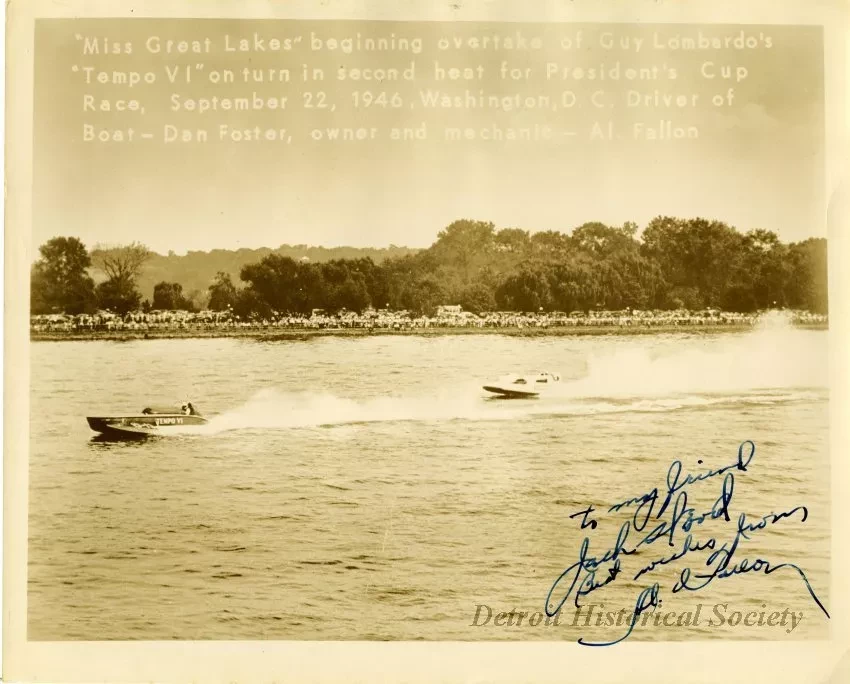 "Miss Great Lakes" beginning overtake of Guy Lombardo's
"Tempo VI" on turn in second heat for President's Cup
Race, September 22, 1946, Washington, D.C. Driver of
Boat - Dan Foster, owner and mechanic - Al. Fallon
TEMPO VI
to my friend
Jack
Best wishes from
Al.
Detroit Historical Society